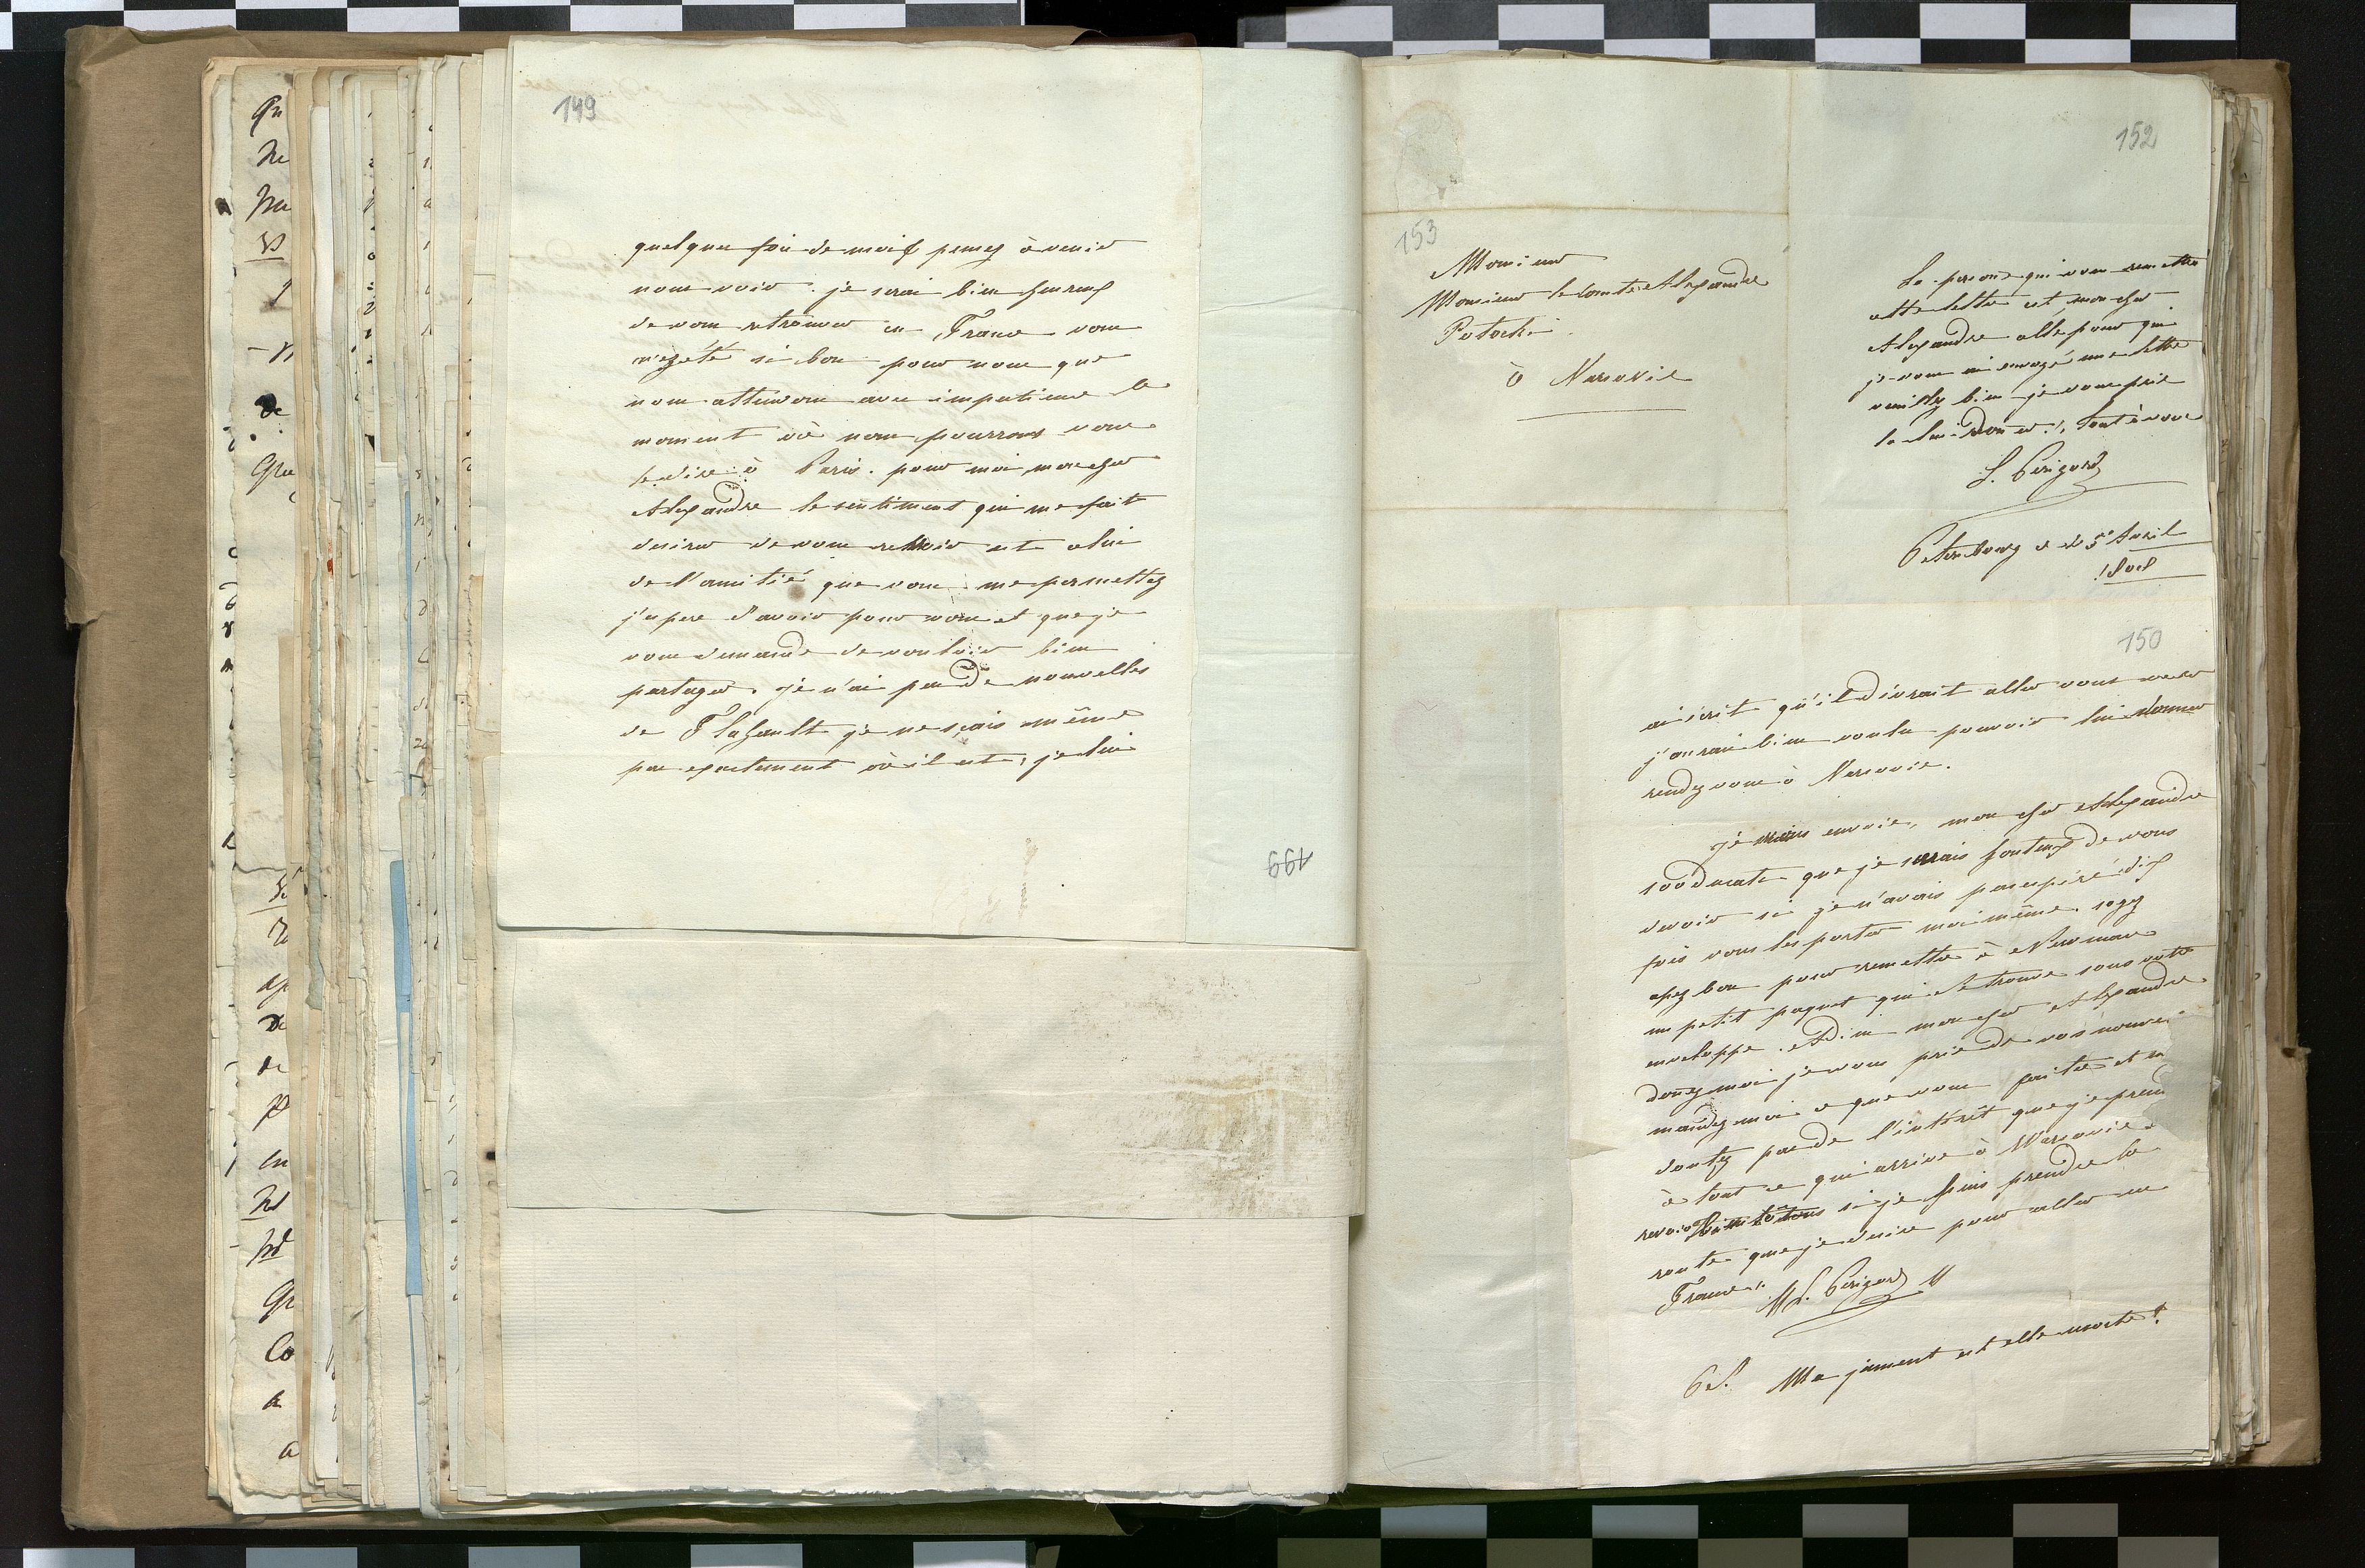 149
quelque fois de moi & pensez à venir
nous voir. je serai bien heureux
de vous retrouver en France vous
m'ezété si bon pour nous que
nous attendons avec impatience le
moment où nous pourrons vous
le dire à Paris. pour moi, mon cher
Alexandre le sentiment qui me fait
desirer de vous revoir est celui
de l'amitié que vous me permettez
j'espere d'avoir pour vous et que je
vous demande de vouloir bien
partager. je n'ai pas de nouvelles
de Flahault je ne sçais même
pas exactement où il est, je lui
199
153
Monsieur
Monsieur le Comte Alexandre
Potocki
à Varsovie
152
La personne qui vous remettra
cette lettre est, mon cher
Alexandre celle pour qui
je vous ai envoyé une lettre
veuillez bien je vous prie
la lui donner. tout à vous
L. Périgord
Petersbourg ce 25 Avril
1808
150
ai écrit qu'il devrait aller vous voir
j'aurai bien voulu pouvoir lui donner
rendez vous à Varsovie.
je vous envoie, mon cher Alexandre
100 ducats que je serais honteux de vous
devoir si je n'avais pas espéré dix
fois vous les porter moi même. soyez
assez bon pour remettre à Neuman
un petit paquet qui se trouve sous votre
enveloppe. Adieu mon cher Alexandre
donnez moi je vous prie de vos nouve
mandez moi ce que vous faites et n
doutez pas de l'intérêt que je prend
à tout ce qui arrive à Varsovie.
revoir bientôt si je puis prendre la
route que je desire pour aller en
France. L. Périgord
PS. Ma jument est elle morte?